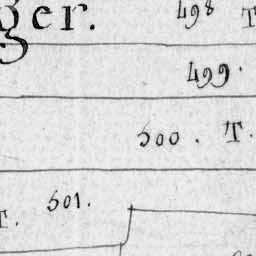 ger. 498 T
499.
500. T.
T. 501.